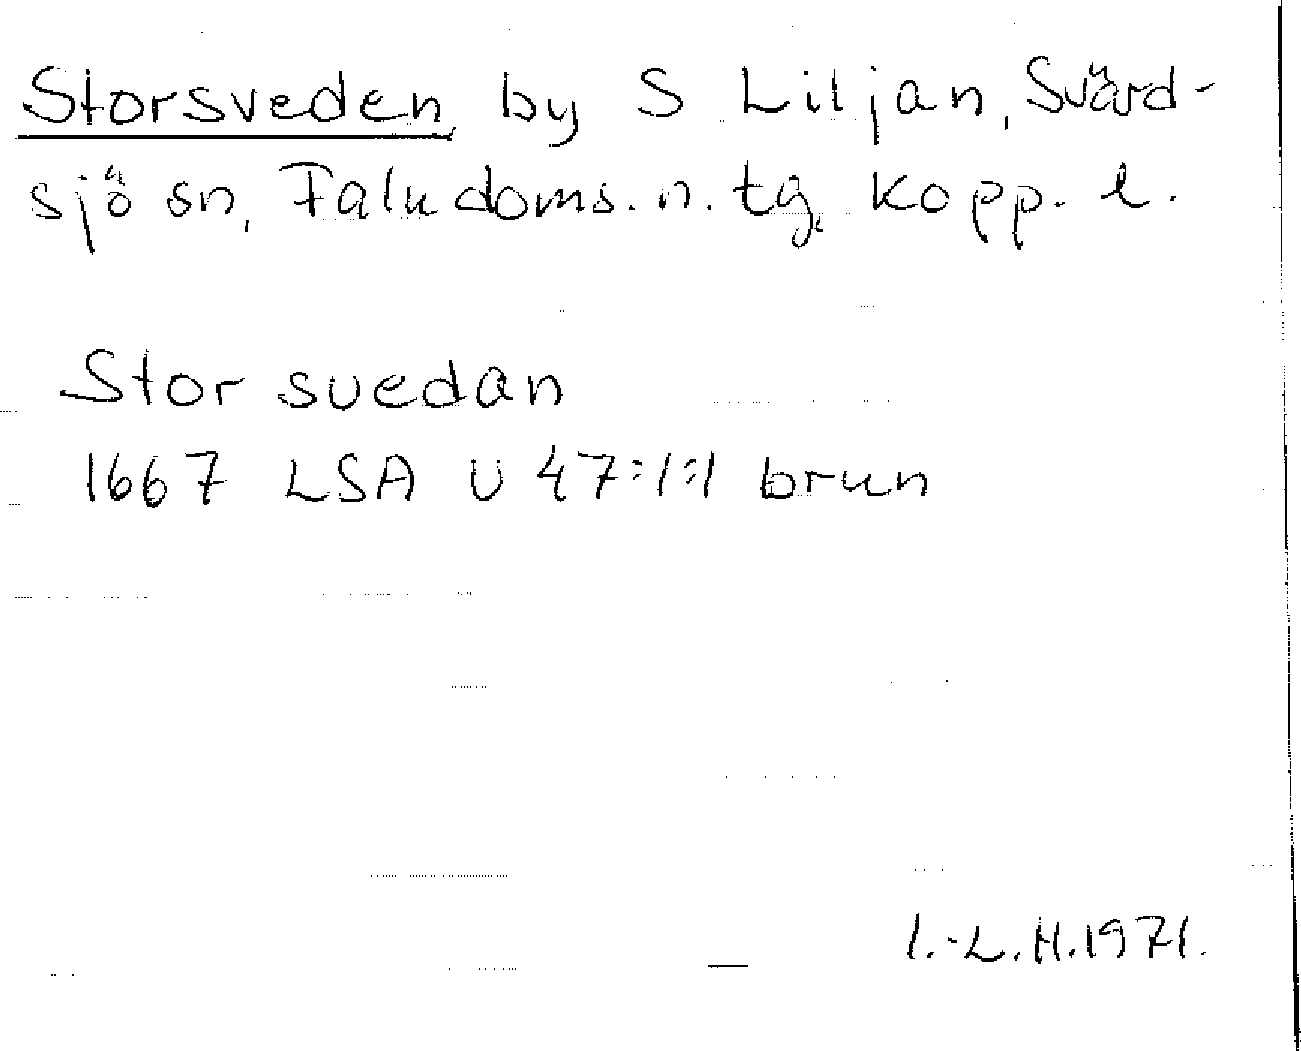 Storsveden, by S Liljan, Svärd-
sjö sn, Falu doms. n. tg, Kopp. l.
Stor suedan
1667 LSA U 47:1:1 brun
I.-L. H. 1971.